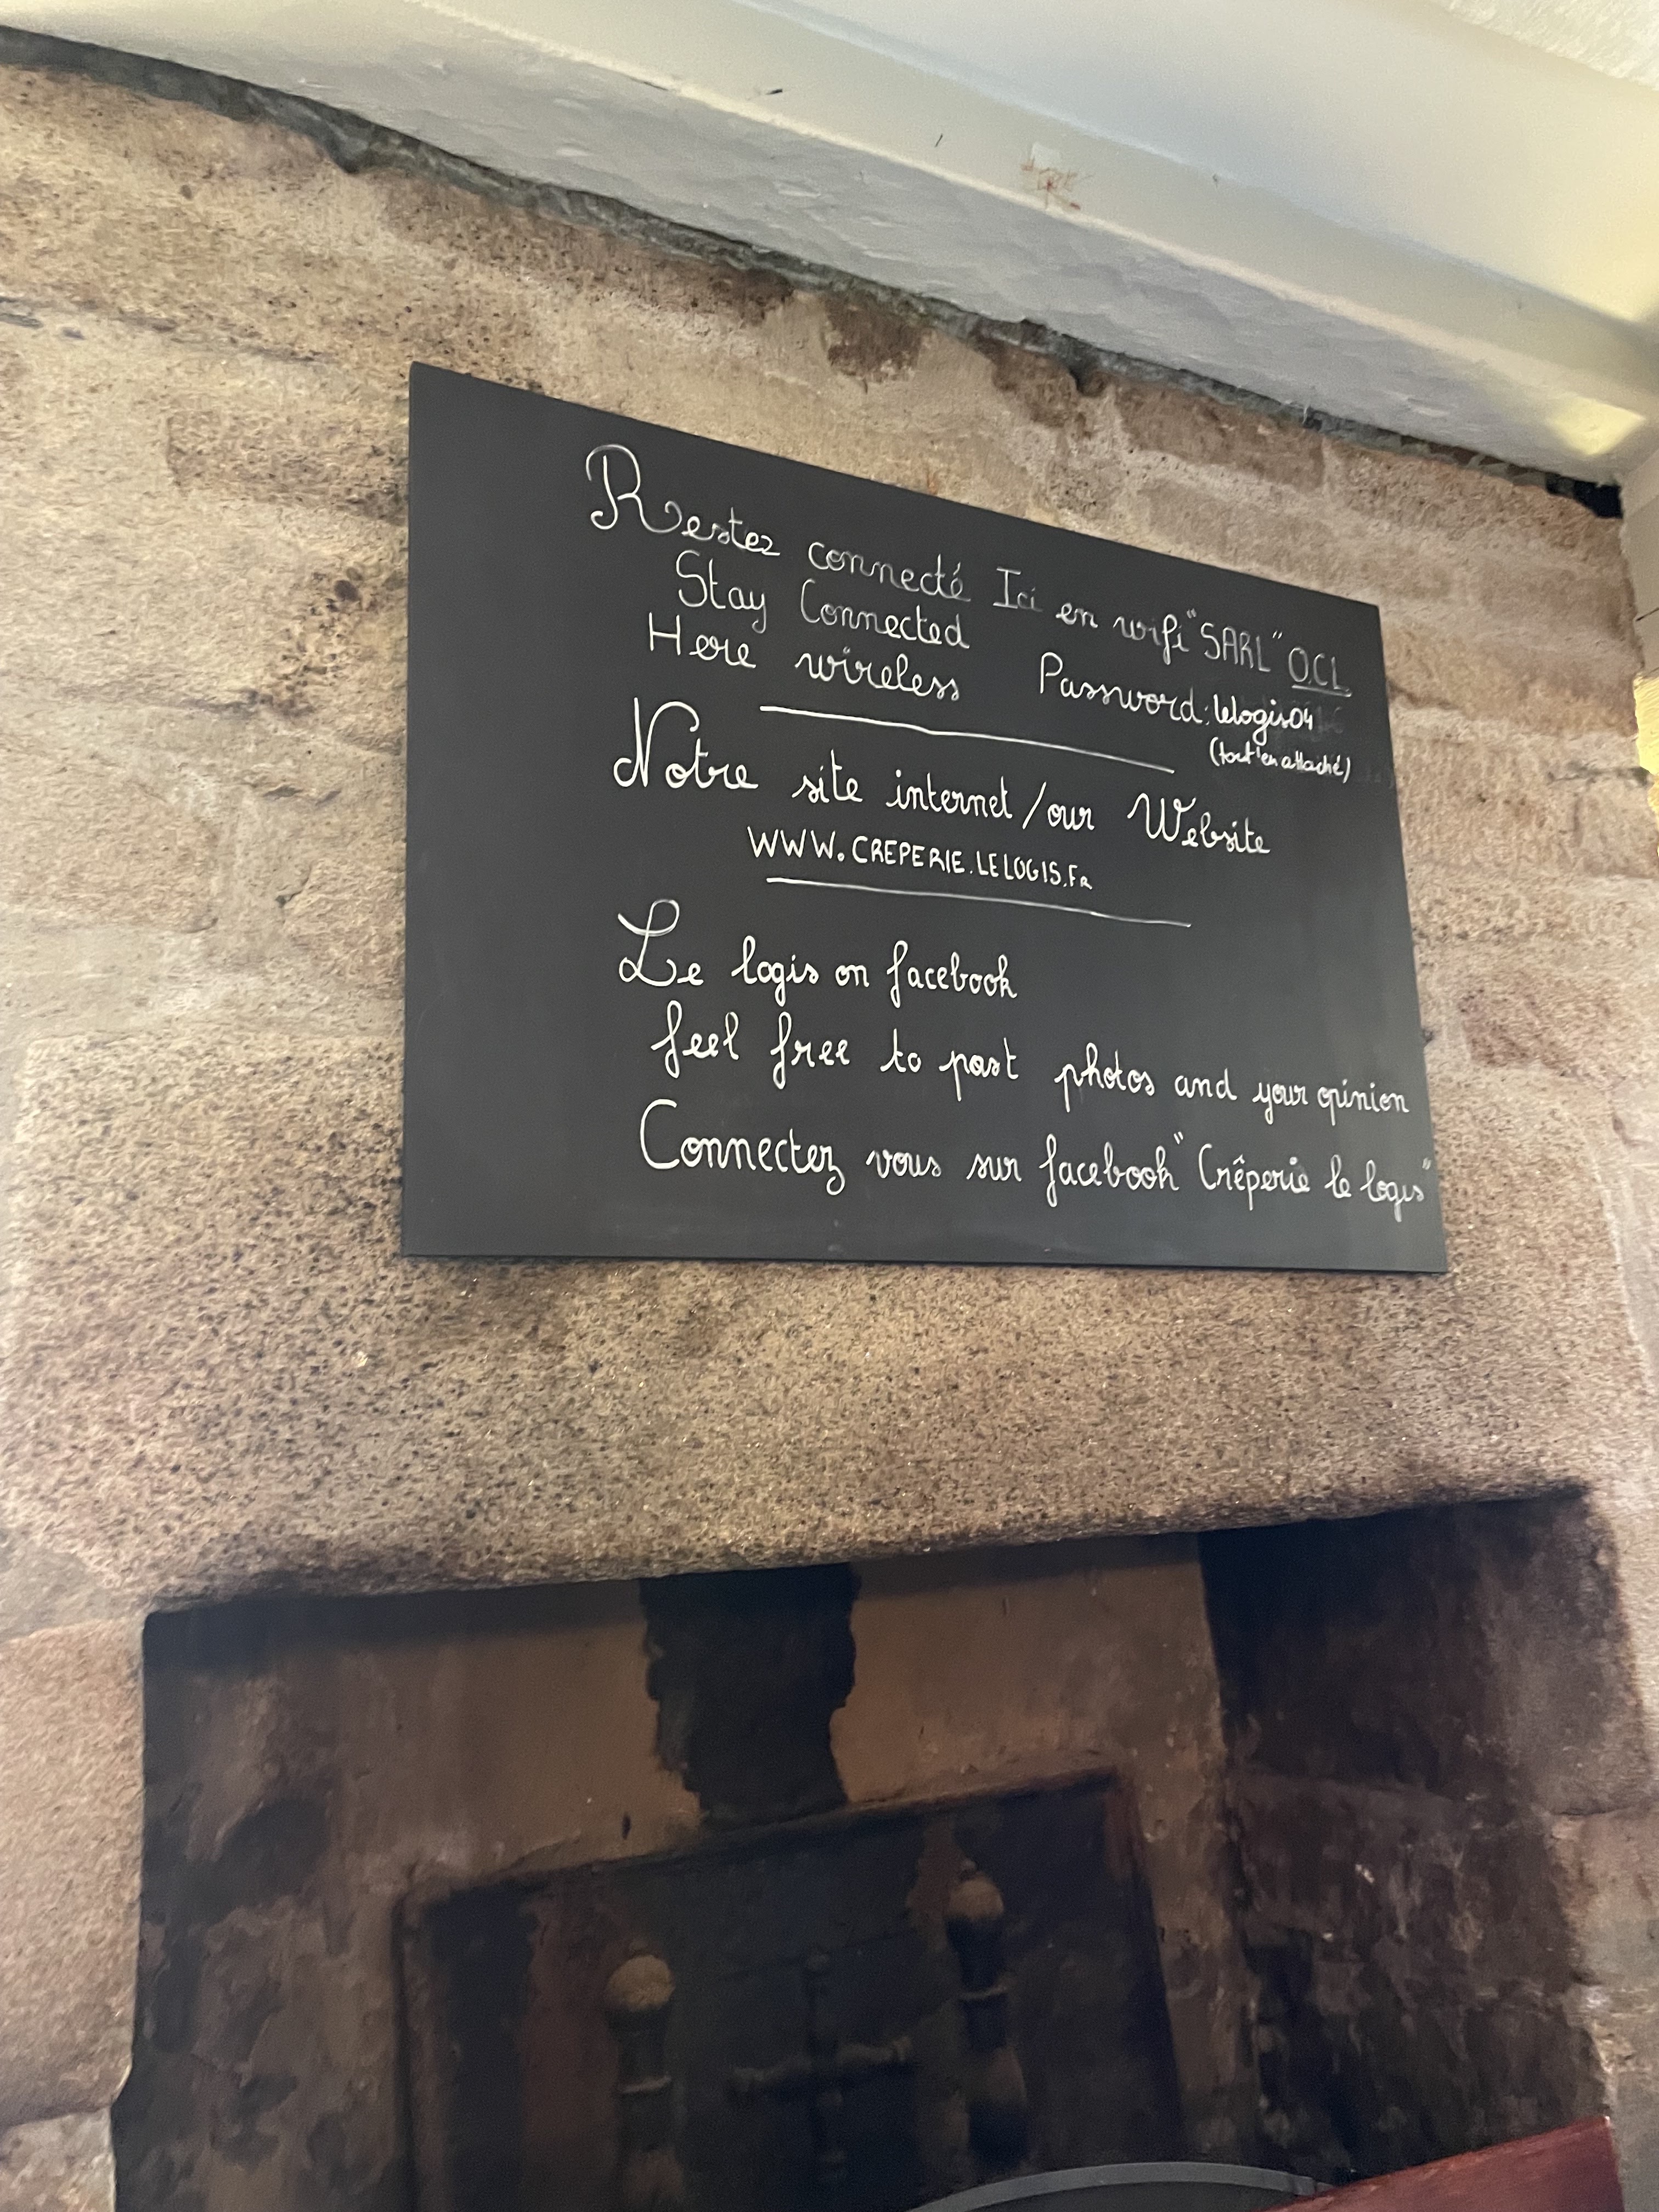 Restez connecté Ici en wifi "SARL" O.C.L
Stay Connected
Here wireless Password: lelogis04
(tout en attaché)
Notre site internet / our Website
WWW.CREPERIE.LELOGIS.FR
Le logis on facebook
feel free to post photos and your opinion
Connectez vous sur facebook "Crêperie le logis"